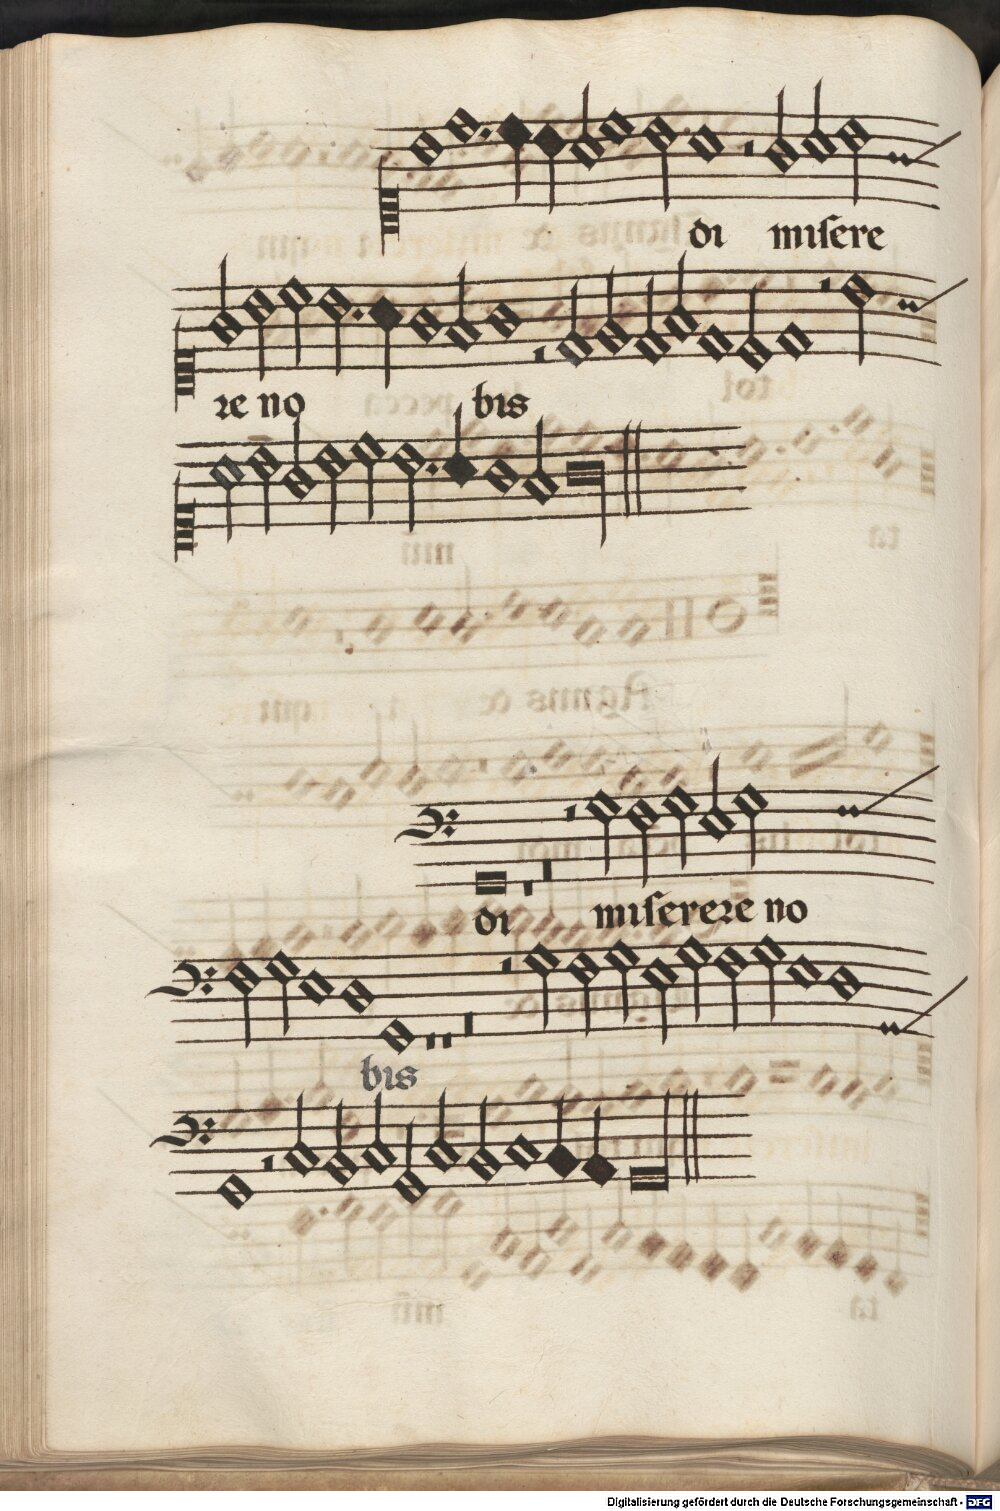 di misere
re no bis
di miserere no
bis
Digitalisierung gefördert durch die Deutsche Forschungsgemeinschaft - DFG